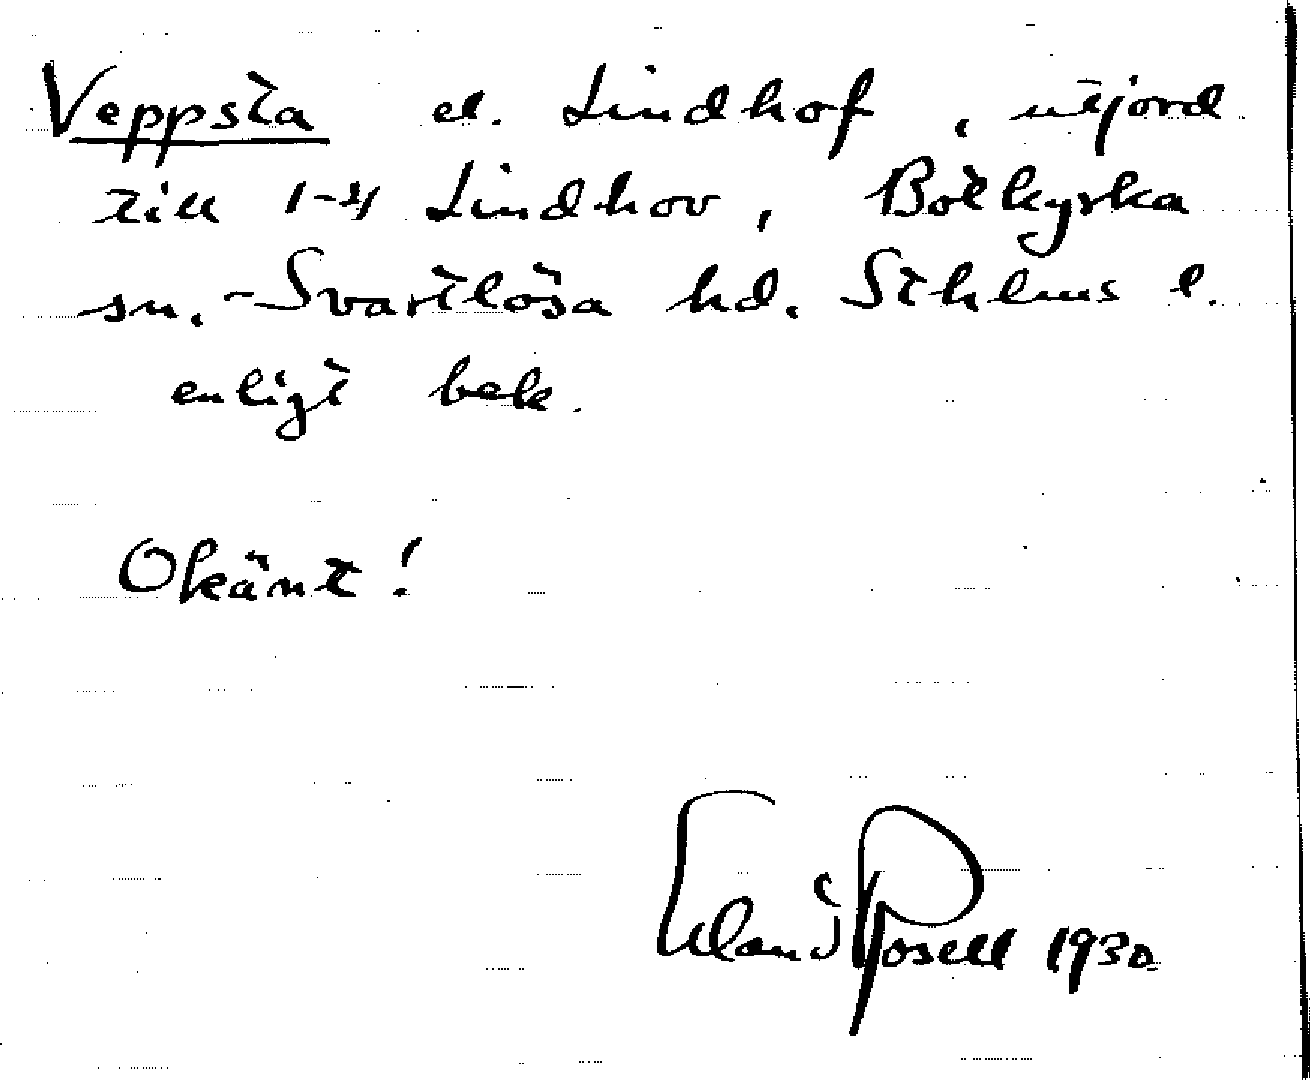 Veppsta el. Lindhof, utjord
till 1-4 Lindhov, Botkyrka
sn. Svartlösa hd. Sthlms l.
enligt bek.
Okänt!
Erland Rosell 1930